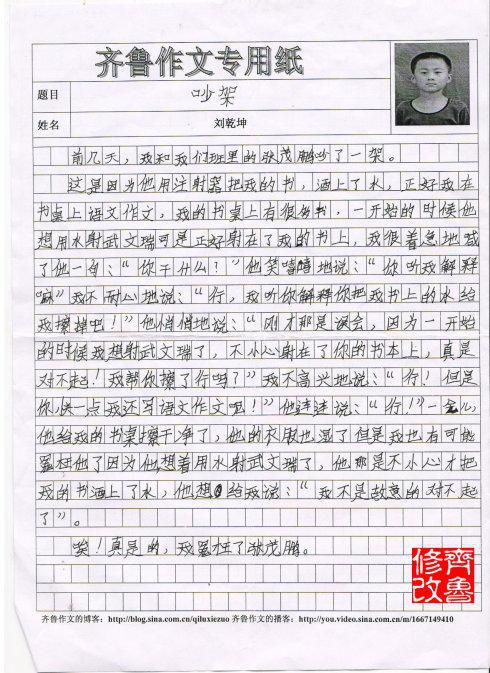 齐鲁作文专用纸
题目
吵架
姓名
刘乾坤
前几天，我和我们班里的张茂鹏吵了一架。
这是因为他用注射器把我的书，洒上了水，正好我在
书桌上语文作文，我的书桌上有很多书，一开始的时候他
想用水射武文瑞可是正好射在了我的书上，我很着急地喊
了他一句：“你干什么？”他笑嘻嘻地说：“你听我解释
嘛”我不耐心地说：“行，我听你解释你把我书上的水给
我擦掉吧！”他悄悄地说：“刚才那是误会，因为一开始
的时候我想射武文瑞了，不小心射在了你的书本上，真是
对不起！我帮你擦了行吗？”我不高兴地说：“行！但是
你快一点我还写语文作文呢！”他连连说：“行！”一会儿，
他给我的书桌擦干净了，他的衣服也湿了但是我也有可能
冤枉他了因为他想着用水射武文瑞了，他那是不小心才把
我的书洒上了水，他想给我说：“我不是故意的对不起
了”。
唉！真是的，我冤枉了张茂鹏。
齐鲁
修改
齐鲁作文的博客：http://blog.sina.com.cn/qiluxiezuo 齐鲁作文的播客：http://you.video.sina.com.cn/m/1667149410